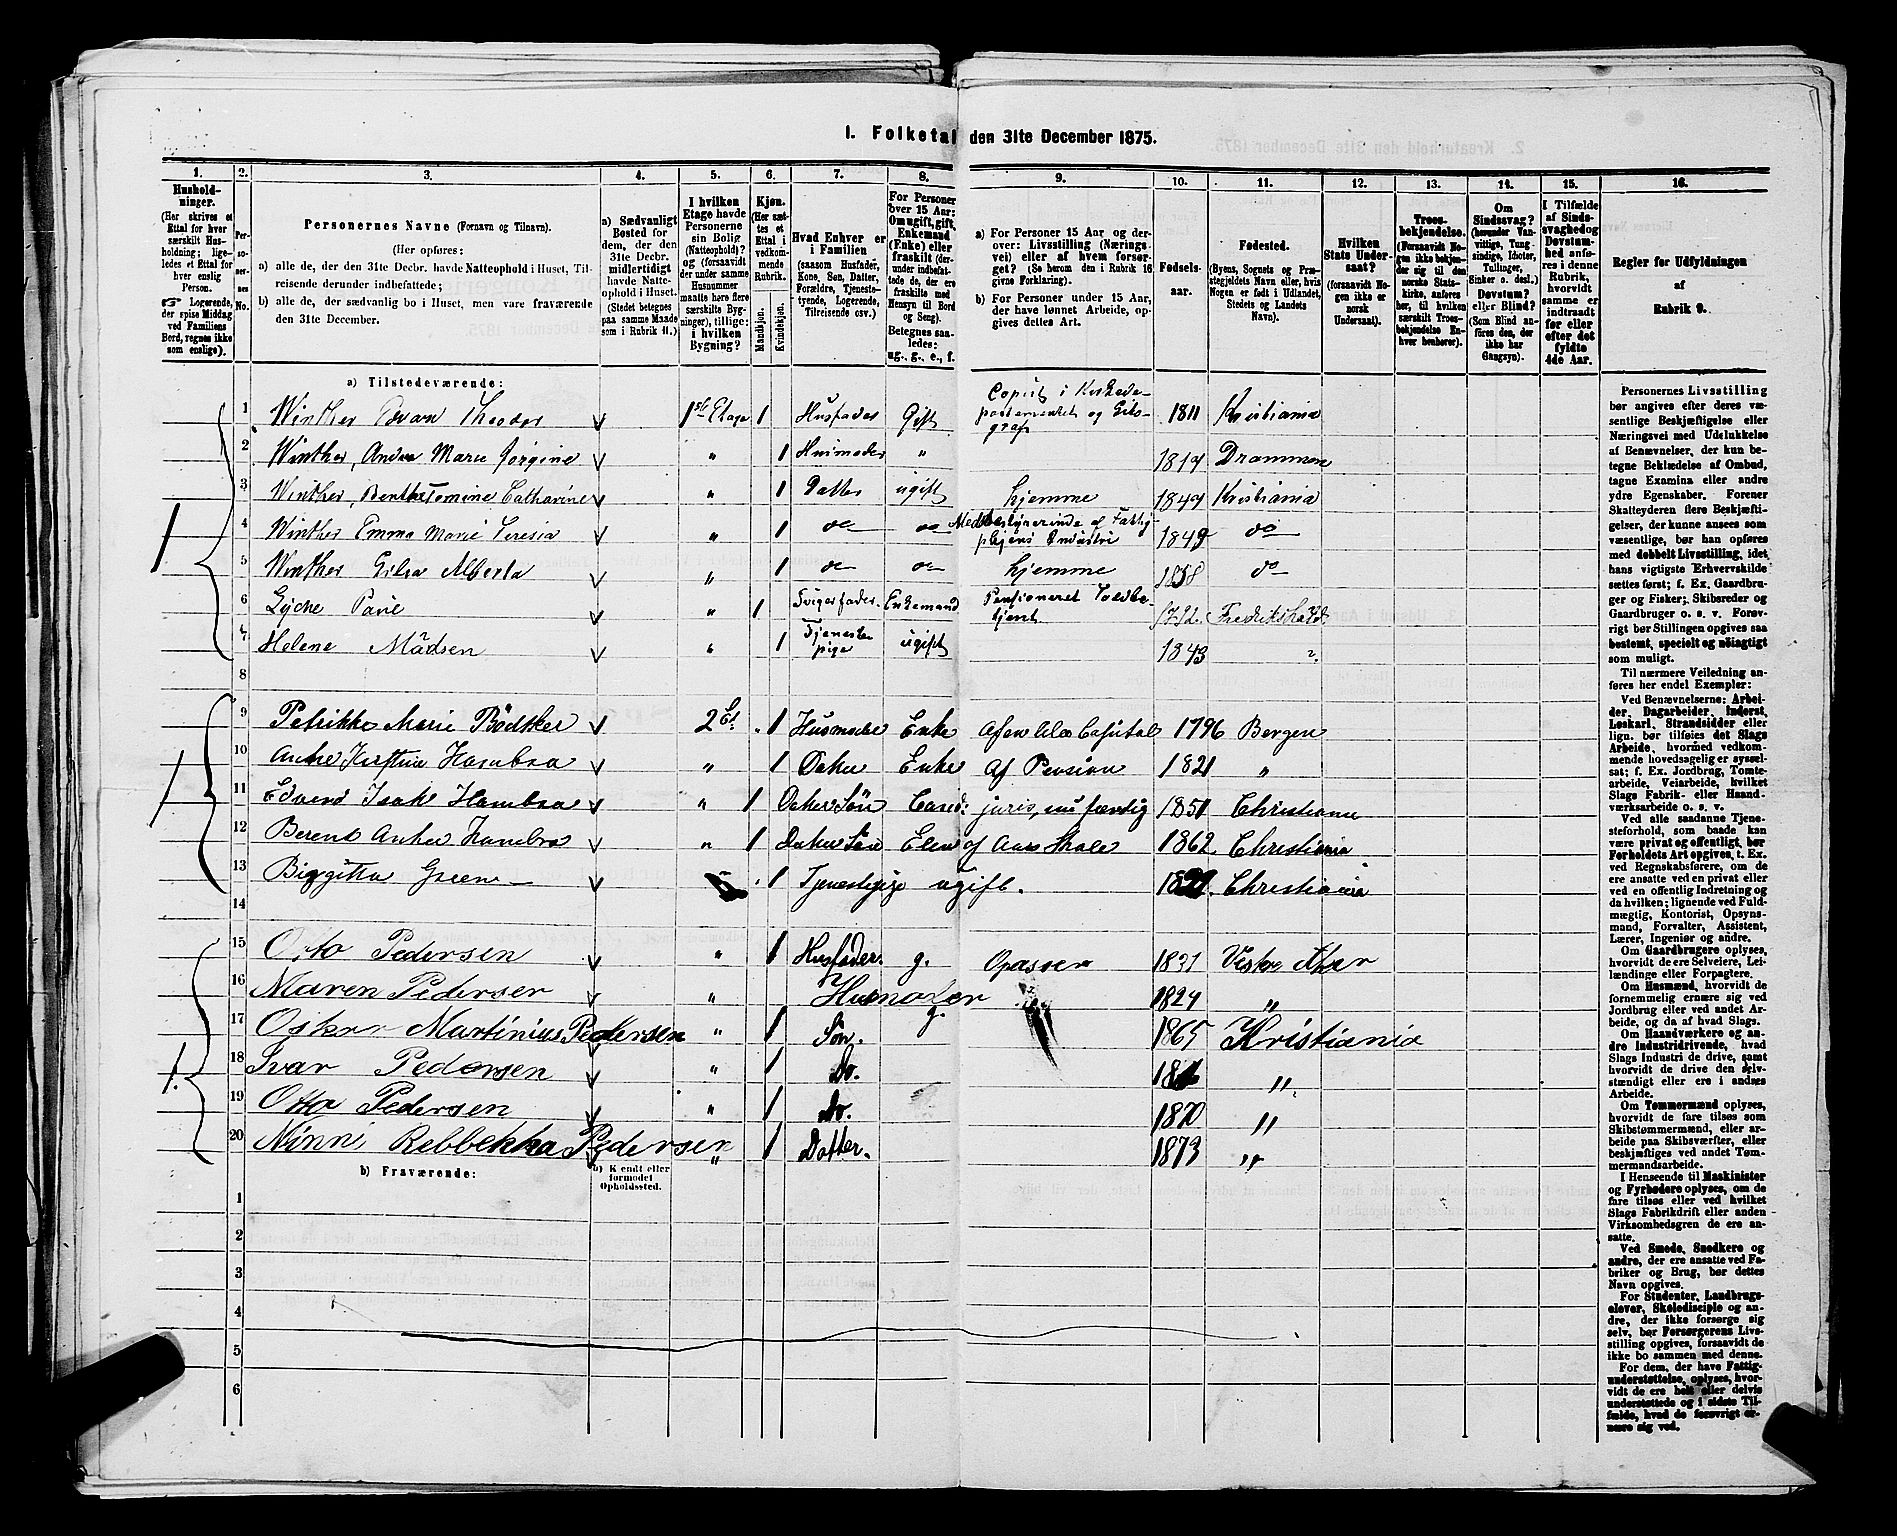 1. Folketal den 31te December 1875.
1. 2. 3. 4. 5. 6. 7. 8. 9. 10. 11. 12. 13. 14. 15. 16.
Husholdninger.
(Her skrives et Ettal for hver særskilt Husholdning; ligeledes et Ettal for hver enslig Person.
Logerende, der spise Middag ved Familiens Bord, regnes ikke som enslige).
Personernes No.
Personernes Navne (Fornavn og Tilnavn).
(Her opføres:
a) alle de, der den 31te Decbr. havde Natteophold i Huset, Tilreisende derunder indbefattede;
b) alle de, der sædvanlig bo i Huset, men vare fraværende den 31te December.
a) Sædvanligt Bosted for dem, der den 31te Decbr. midlertidigt havde Natteophold i Huset. (Stedet betegnes paa samme Maade som i Rubrik 11.)
I hvilken Etage havde Personerne sin Bolig (Natteophold)? og (forsaavidt der under samme Husnummer maatte høre flere særskilte Bygninger), tillige: i hvilken Bygning?
Kjøn. (Her sættes et Ettal i vedkommende Rubrik.
Mandkjøn. Kvindekjøn.
Hvad Enhver er i Familien (saasom Husfader, Kone, Søn, Datter, Forældre, Tjenestetyende, Logerende, Tilreisende osv.)
For Personer over 15 Aar: Om ugift, gift, Enkemand (Enke) eller fraskilt (derunder indbefattede de, der ere fraskilte med Hensyn til Bord og Seng). Betegnes saaledes: ug., g., e., f.
a) For Personer 15 Aar og derover: Livsstilling (Næringsvei) eller af hvem forsørget? (Se herom den i Rubrik 16 givne Forklaring).
b) For Personer under 15 Aar, der have lønnet Arbeide, opgives dettes Art.
Fødselsaar.
Fødested.
(Byens, Sognets og Præstegjeldets Navn eller, hvis Nogen er født i Udlandet, Stedets og Landets Navn).
Hvilken Stats Undersaat? (forsaavidt Nogen ikke er norsk Undersaat).
Troesbekjendelse. (Forsaavidt Nogen ikke bekjender sig til den norske Statskirke, anføres her, til hvilken særskilt Troesbekjendelse Enhver henhører).
Om Sindssvag? (herunder Vanvittige, Tungsindige, Idioter, Tullinger, Sinker o. desl.) Døvstum? eller Blind? (Som Blind anføres den, der ikke har Gangsyn).
I Tilfælde af Sindssvaghed og Døvstumhed anføres i denne Rubrik, hvorvidt samme er indtraadt før eller efter det fyldte 4de Aar.
Regler for Udfyldningen af Rubrik 9.
a) Tilstedeværende:
1 Winther Theodor 1ste Etage 1 Husfader Gift Copist i 1811 Kristiania
2 Winther, Marie Jørgine " 1 Husmoder " Drammen
3 Winther, Catharine " 1 Datter ugift hjemme 1849 Kristiania
4 Winther Emma Marie Teresia " 1 do do Industri 1849 do
5 Winther Alberta " 1 do do hjemme 1858 do
6 " 1 Svigerfader Enkemand Pensioneret Fredrikshald
7 Helene Madsen " 1 Tjenestepige ugift 1843 "
8
9 Petrikke Marie Bödtker 2 Et. 1 Husmoder Enke Capital 1796 Bergen
10 Hambro " 1 Enke Af Pension 1821 "
11 Edvard Isak Hambro " 1 Cand: juris, 1851 Christiania
12 Berent Anker Hambro " 1 Elev af Aars Skole 1862 Christiania
13 Birgitta 1 Tjenestepige ugift. Christiania
14
15 Otto Pedersen " 1 Husfader. g. Opasser 1831 Vestre
16 Maren Pedersen " Husmoder g. 1824 "
17 Oskar Martinius Pedersen " 1 Søn. 1865 Kristiania
18 Ivar Pedersen " 1 Do. "
19 Otto Pedersen " 1 do. 1870 "
20 Ninni Rebbekka Pedersen " 1 Datter. 1873 "
b) Fraværende:
b) Kjendt eller formodet Opholdssted.
1
2
3
4
5
6
Personernes Livsstilling bør angives efter deres væsentlige Beskjæftigelse eller Næringsvei med Udelukkelse af Benævnelser, der kun betegne Beklædelse af Ombud, tagne Examina eller andre ydre Egenskaber. Forener Skatteyderen flere Beskjæftigelser, der kunne ansees som væsentlige, bør han opføres med dobbelt Livsstilling, idet hans vigtigste Erhvervskilde sættes først; f. Ex. Gaardbruger og Fisker; Skibsreder og Gaardbruger o. s. v. Forøvrigt bør Stillingen opgives saa bestemt, specielt og nöiagtigt som muligt.
Til nærmere Veiledning anføres her endel Exempler:
Ved Benævnelserne: Arbeider, Dagarbeider, Inderst, Løskarl, Strandsidder eller lign. bør tilføies det Slags Arbeide, hvormed vedkommende hovedsagelig er sysselsat; f. Ex. Jordbrug, Tomtearbeide, Veiarbeide, hvilket Slags Fabrik- eller Haandværksarbeide o. s. v.
Ved alle saadanne Tjenesteforhold, som baade kan være privat og offentlig, bør Forholdets Art opgives, t. Ex. ved Regnskabsførere, om de ere ansatte ved en privat eller ved en offentlig Indretning og da hvilken; lignende ved Fuldmægtig, Kontorist, Opsynsmand, Forvalter, Assistent, Lærer, Ingeniør og andre.
Om Gaardbrugere oplyses, hvorvidt de ere Selveiere, Leilændinge eller Forpagtere.
Om Husmænd, hvorvidt de fornemmelig ernære sig ved Jordbrug eller ved andet Arbeide, og da af hvad Slags.
Om Haandværkere og andre Industridrivende, hvad Slags Industri de drive, samt hvorvidt de drive den selvstændigt eller ere i andres Arbeide.
Om Tømmermænd oplyses, hvorvidt de fare tilsøs som Skibstømmermænd, eller arbeide paa Skibsværfter, eller beskjæftiges ved andet Tømmermandsarbeide.
I Henseende til Maskinister og Fyrbødere oplyses, om de fare tilsøs eller ved hvilket Slags Fabrikdrift eller anden Virksomhedsgren de ere ansatte.
Ved Smede, Snedkere og andre, der ere ansatte ved Fabriker og Brug, bør dettes Navn opgives.
For Studenter, Landbrugselever, Skoledisciple og andre, der ikke forsørge sig selv, bør Forsørgerens Livsstilling opgives, forsaavidt de ikke bo sammen med denne.
For dem, der have Fattigunderstøttelse, oplyses, hvorvidt de ere helt eller delvis understøttede og i sidste Tilfælde, hvad de forøvrigt ernære sig ved.